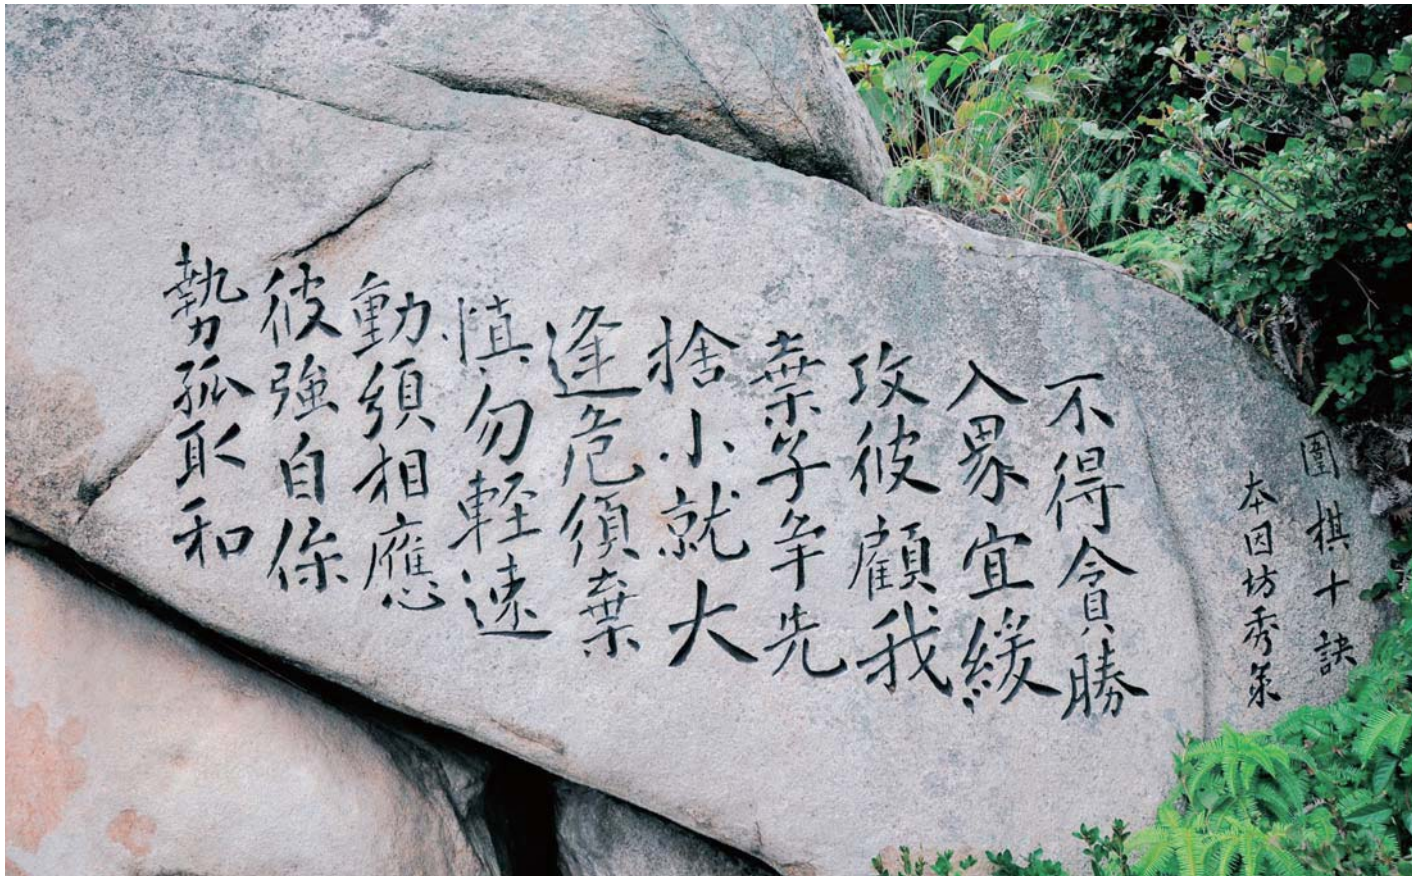 圍棋十訣
本因坊秀策
不得貪勝
入界宜緩
攻彼顧我
棄子争先
捨小就大
逢危須棄
慎勿軽速
動須相應
彼強自保
勢孤取和